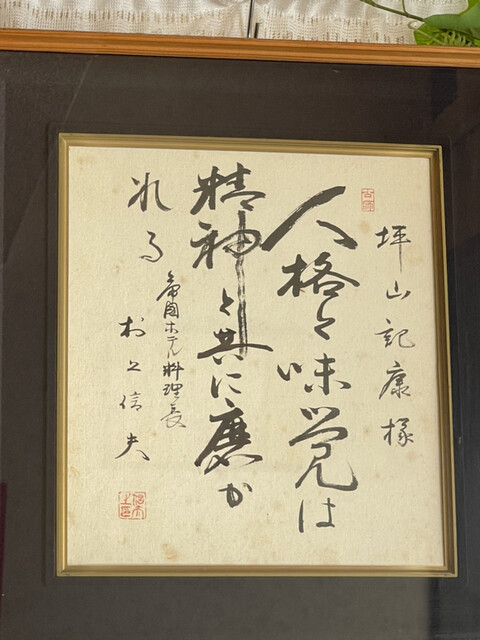 坪山記康様
人格と味覚は
精神と共に磨か
れる
帝国ホテル料理長
村上信夫